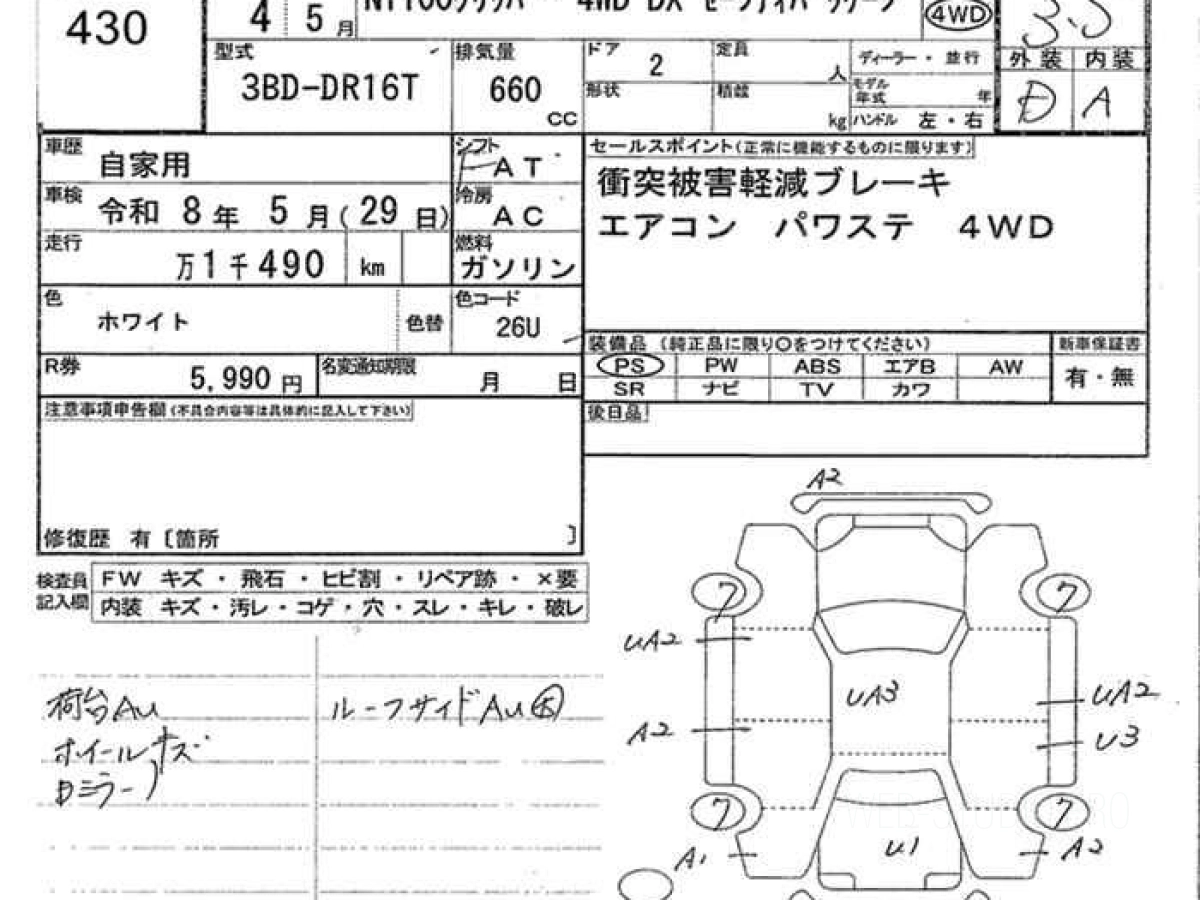 430
4 5月
NT100クリッパー 4WD DX セーフティパッケージ
4WD
3.5
型式
3BD-DR16T
排気量
660
CC
ドア
2
定員
人
形状
積載
kg
ディーラー・並行
モデル
年式 年
ハンドル 左・右
外装 内装
D A
車歴
自家用
シフト
F AT
車検
令和 8年 5月(29日)
冷房
AC
走行
万1千490 km
燃料
ガソリン
色
ホワイト
色替
色コード
26U
R券
5,990円
名変通知期限
月 日
セールスポイント(正常に機能するものに限ります)
衝突被害軽減ブレーキ
エアコン パワステ 4WD
装備品 (純正品に限り〇をつけてください)
新車保証書
PS PW ABS エアB AW
有・無
SR ナビ TV カワ
後日品
注意事項申告欄(不具合内容等は具体的に記入して下さい)
修復歴 有〔箇所 〕
検査員
記入欄
FW キズ・飛石・ヒビ割・リペア跡・×要
内装 キズ・汚レ・コゲ・穴・スレ・キレ・破レ
荷台AU
ホイールキズ
ルーフサイドAU大
A2
7 7
UA2
UA3
UA2
A2
U3
7 7
A1
U1
A2